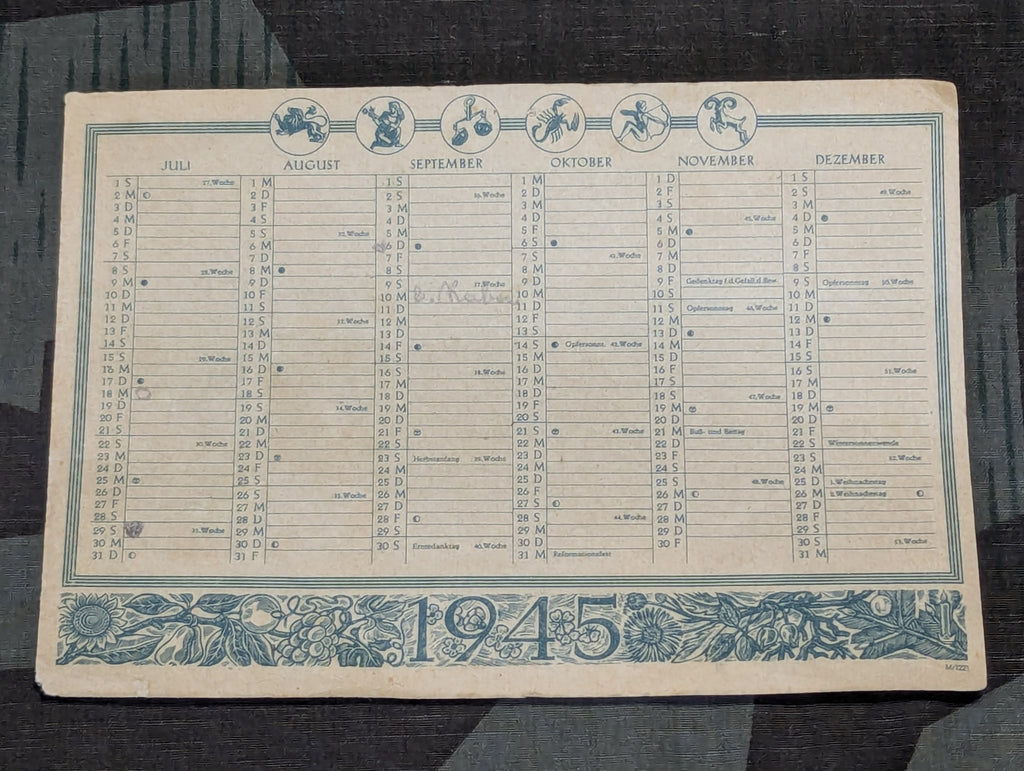 JULI
1 S 27.Woche
2 M
3 D
4 M
5 D
6 F
7 S
8 S 28.Woche
9 M
10 D
11 M
12 D
13 F
14 S
15 S 29.Woche
16 M
17 D
18 M
19 D
20 F
21 S
22 S 30.Woche
23 M
24 D
25 M
26 D
27 F
28 S
29 S 31.Woche
30 M
31 D
AUGUST
1 M
2 D
3 F
4 S
5 S 32.Woche
6 M
7 D
8 M
9 D
10 F
11 S
12 S 33.Woche
13 M
14 D
15 M
16 D
17 F
18 S
19 S 34.Woche
20 M
21 D
22 M
23 D
24 F
25 S
26 S 35.Woche
27 M
28 D
29 M
30 D
31 F
SEPTEMBER
1 S
2 S 36.Woche
3 M
4 D
5 M
6 D
7 F
8 S
9 S 37.Woche
10 M
11 D
12 M
13 D
14 F
15 S
16 S 38.Woche
17 M
18 D
19 M
20 D
21 F
22 S
23 S Herbstanfang 39.Woche
24 M
25 D
26 M
27 D
28 F
29 S
30 S Erntedanktag 40.Woche
OKTOBER
1 M
2 D
3 M
4 D
5 F
6 S
7 S 41.Woche
8 M
9 D
10 M
11 D
12 F
13 S
14 S Opfersonnt. 42.Woche
15 M
16 D
17 M
18 D
19 F
20 S
21 S 43.Woche
22 M
23 D
24 M
25 D
26 F
27 S
28 S 44.Woche
29 M
30 D
31 M Reformationsfest
NOVEMBER
1 D
2 F
3 S
4 S 45.Woche
5 M
6 D
7 M
8 D
9 F Gedenktag f.d.Gefall.d.Bew.
10 S
11 S Opfersonntag 46.Woche
12 M
13 D
14 M
15 D
16 F
17 S
18 S 47.Woche
19 M
20 D
21 M Buß- und Bettag
22 D
23 F
24 S
25 S 48.Woche
26 M
27 D
28 M
29 D
30 F
DEZEMBER
1 S
2 S 49.Woche
3 M
4 D
5 M
6 D
7 F
8 S
9 S Opfersonntag 50.Woche
10 M
11 D
12 M
13 D
14 F
15 S
16 S 51.Woche
17 M
18 D
19 M
20 D
21 F
22 S Wintersonnenwende
23 S 52.Woche
24 M
25 D 1.Weihnachtstag
26 M 2.Weihnachtstag
27 D
28 F
29 S
30 S 53.Woche
31 M
1945
M/1221